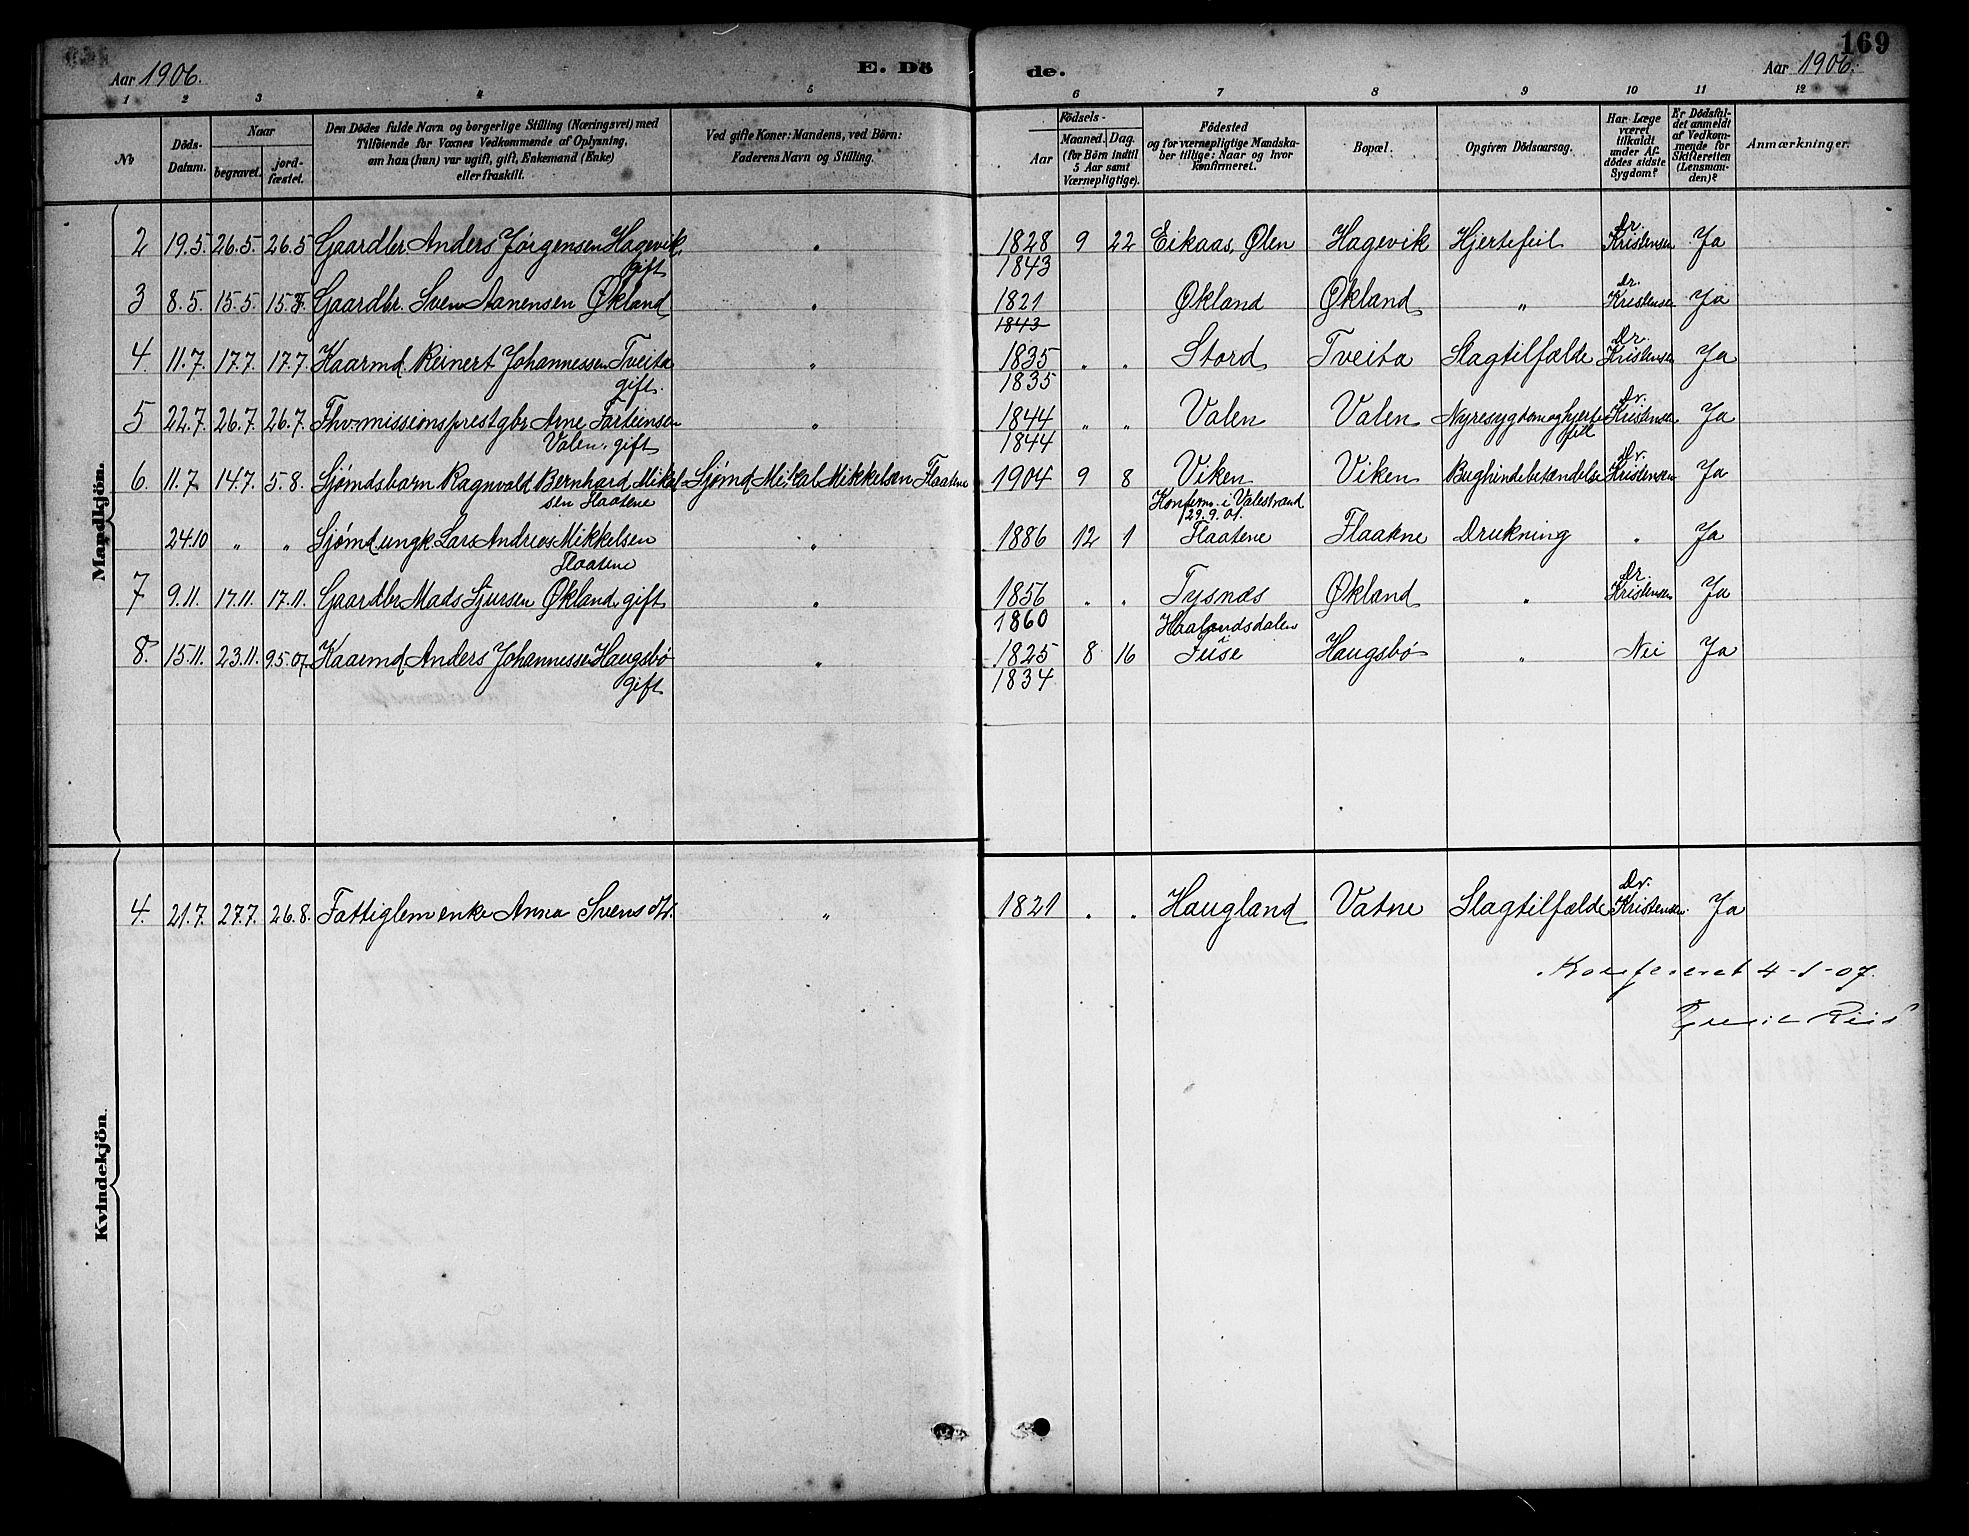 169
Aar 1906. E. Dö de. Aar 1906.
1 2 3 4 5 6 7 8 9 10 11 12
No
Döds-
Datum.
Naar
begravet.
jord-
fæstet.
Den Dödes fulde Navn og borgerlige Stilling (Næringsvei) med
Tilföiende for Voxnes Vedkommende af Oplysning,
om han (hun) var ugift, gift, Enkemand (Enke)
eller fraskilt.
Ved gifte Koner: Mandens, ved Börn:
Faderens Navn og Stilling.
Födsels-
Aar
Maaned. Dag.
(for Börn indtil
5 Aar samt
Værnepligtige).
Födested
og for værnepligtige Mandska-
ber tillige: Naar og hvor
konfirmeret.
Bopæl.
Opgiven Dödsaarsag.
Har Læge
været
tilkaldt
under Af-
dödes sidste
Sygdom?
Er Dödsfal-
det anmeldt
af Vedkom-
mende for
Skifteretten
(Lensman-
den)?
Anmærkninger.
Mandkjön.
2 19.5. 26.5. 26.5 Gaardbr. Anders Jørgensen Hagevik, " 1828 9 22 Eikaas, Ølen Hagevik Hjertefeil Dr. Kristensen Ja
gift 1843
3 8.5. 15.5. 15.5. Gaardbr. Sven Aanensen Økland " 1821 Økland Økland " Dr. Kristensen Ja
1843
4. 11.7. 17.7. 17.7. Kaarmd. Reinert Johannessen Tveita " 1835 " " Stord Tveita Slagtilfælde Dr. Kristensen Ja
gift. 1835
5 22.7. 26.7. 26.7. Fhv. missionsprest gbr Arne Torbeinsen " 1844 " " Valen Valen Nyresygdom og hjerte Dr. Kristensen Ja
Valen, gift 1844 feil
6. 11.7. 14.7. 5.8. Sjømdsbarn Ragnvald Bernhard Mikal Sjømd Mikal Mikkelsen Flaatene 1904 9 8 Viken Viken Bughindebetændelse Dr. Kristensen Ja
sen Flaatene Konferm. i Valestrand
29.9.01.
24.10 " " Sjømd ungk. Lars Andreas Mikkelsen " 1886 12 1 Flaatene Flaatene Drukning " Ja
Flaatene
7 9.11. 17.11. 17.11. Gaardbr Mads Sjursen Økland, gift " 1856 " " Tysnæs Økland " Dr. Kristensen Ja
1860 Haalandsdalen
8. 15.11. 23.11. 9.5.07. Kaarmd Anders Johannessen Haugsbø " 1825 8 16 i Fuse Haugsbø " Nei Ja
gift 1834
Kvindekjön.
4. 21.7. 27.7. 26.8. Fattiglem enke Anna Svensdtr. " 1821 " " Haugland Vatne Slagtilfælde Dr. Kristensen. Ja
Konfereret 4-1-07.
Riis